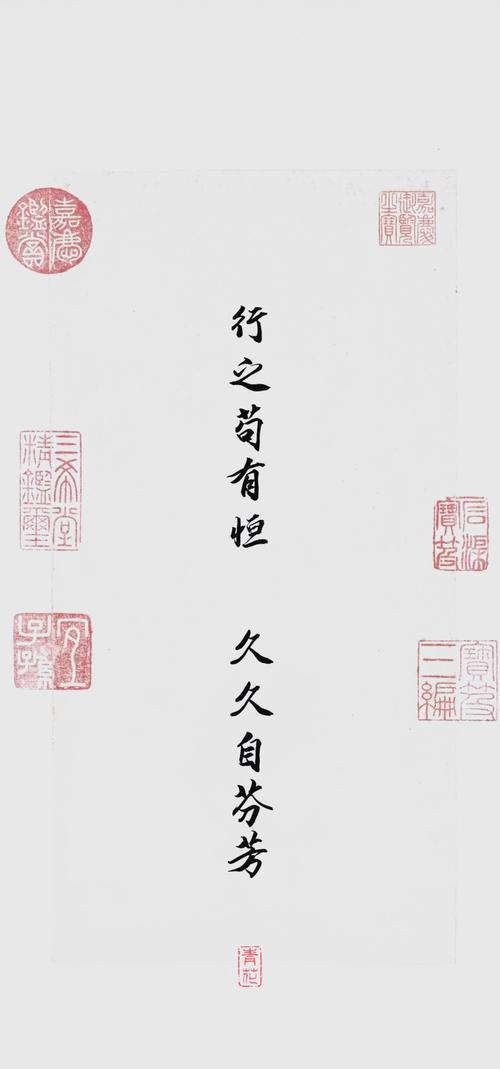 行之苟有恒
久久自芬芳
嘉慶御覽之寶
嘉慶鑑賞
三希堂精鑑璽
宜子孫
寶笈三編
青花